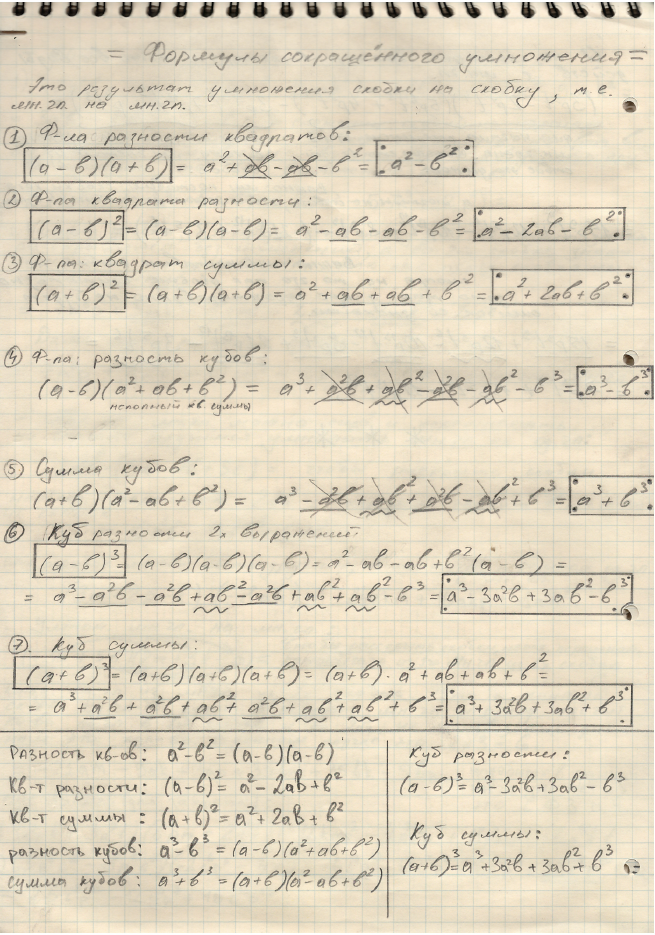 = Формулы сокращённого умножения =
Это результат умножения скобки на скобку, т.е.
мн.чл. на мн.чл.
① Ф-ла разности квадратов:
(a – b)(a + b) = a² + ab – ab – b² = a² – b²
② Ф-ла квадрата разности:
(a – b)² = (a–b)(a–b) = a² – ab – ab – b² = a² – 2ab – b²
③ Ф-ла: квадрат суммы:
(a + b)² = (a+b)(a+b) = a² + ab + ab + b² = a² + 2ab + b²
④ Ф-ла: разность кубов:
(a–b)(a² + ab + b²) = a³ + a²b + ab² – a²b – ab² – b³ = a³ – b³
неполный кв. суммы
⑤ Сумма кубов:
(a+b)(a² – ab + b²) = a³ – a²b + ab² + a²b – ab² + b³ = a³ + b³
⑥ Куб разности 2х выражений
(a–b)³ = (a–b)(a–b)(a–b) = a² – ab – ab + b² (a – b) =
= a³ – a²b – a²b + ab² – a²b + ab² + ab² – b³ = a³ – 3a²b + 3ab² – b³
⑦. Куб суммы:
(a+b)³ = (a+b)(a+b)(a+b) = (a+b) · a² + ab + ab + b² =
= a³ + a²b + a²b + ab² + a²b + ab² + ab² + b³ = a³ + 3a²b + 3ab² + b³
Разность кв-ов: a² – b² = (a–b)(a–b)
Кв-т разности: (a–b)² = a² – 2ab + b²
Кв-т суммы: (a+b)² = a² + 2ab + b²
разность кубов: a³ – b³ = (a–b)(a² + ab + b²)
сумма кубов: a³ + b³ = (a+b)(a² – ab + b²)
Куб разности:
(a–b)³ = a³ – 3a²b + 3ab² – b³
Куб суммы:
(a+b)³ = a³ + 3a²b + 3ab² + b³